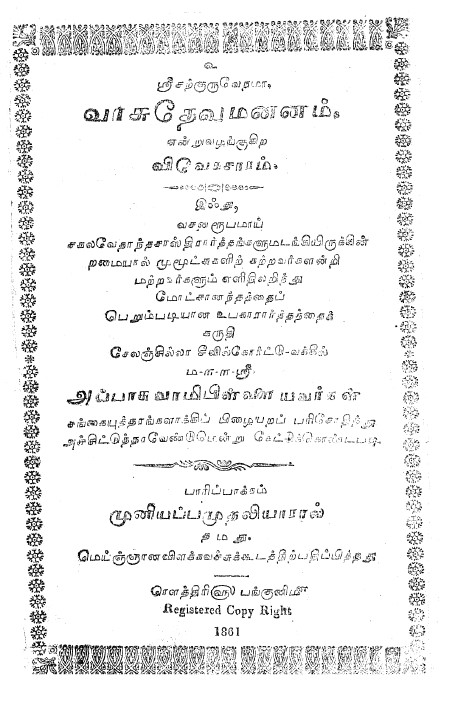 உ
ஸ்ரீசற்குருவேநமா,
வாசுதேவமனனம்,
என்றுவழங்குகிற
விவேகசாரம்.
இஃது,
வசனரூபமாய்
சகலவேதாந்தசாஸ்திரார்த்தங்களுமடங்கியிருக்கின்
றமையால் முமூட்சுகளிற் கற்றவர்களன்றி
மற்றவர்களும் எளிதிலறிந்து
மோட்சானந்தத்தைப்
பெறும்படியான உபகாரார்த்தத்தைக்
கருதி
சேலஞ்சில்லா சிவில்கோர்ட்டு-வக்கீல்
ம-ள-ள-ஸ்ரீ
அப்பாசுவாமிபிள்ளையவர்கள்
பிழையறப் பரிசோதித்து
அச்சிட்டுத்தரவேண்டுமென்று கேட்டுக்கொண்டபடி
பாரிப்பாக்கம்
முனியப்பமுதலியாரால்
தமது
மெய்ஞ்ஞானவிளக்கவச்சுக்கூடத்திற்பதிப்பித்தது
ரௌத்திரி௵ பங்குனிமீ
Registered Copy Right
1861